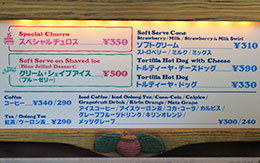 Special Churro
スペシャルチュロス ¥350
Soft Serve on Shaved Ice
(Blue Jelled Dessert)
クリーム・シェイブアイス ¥500
(ブルーゼリー)
Soft Serve Cone
Strawberry / Milk / Strawberry & Milk Swirl
ソフトクリーム ¥310
ストロベリー / ミルク / ミックス
Tortilla Hot Dog with Cheese
トルティーヤ・チーズドッグ ¥390
Tortilla Hot Dog
トルティーヤ・ドッグ ¥330
Coffee
コーヒー ¥340/290
Tea / Oolong Tea
紅茶/ウーロン茶 ¥290
Iced Coffee / Iced Oolong Tea / Coca-Cola / Calpico /
Grapefruit Drink / Kirin Orange / Mets Grape
アイスコーヒー/アイスウーロン茶/コカ・コーラ/カルピス/
グレープフルーツドリンク/キリンオレンジ/
メッツグレープ ¥300/240